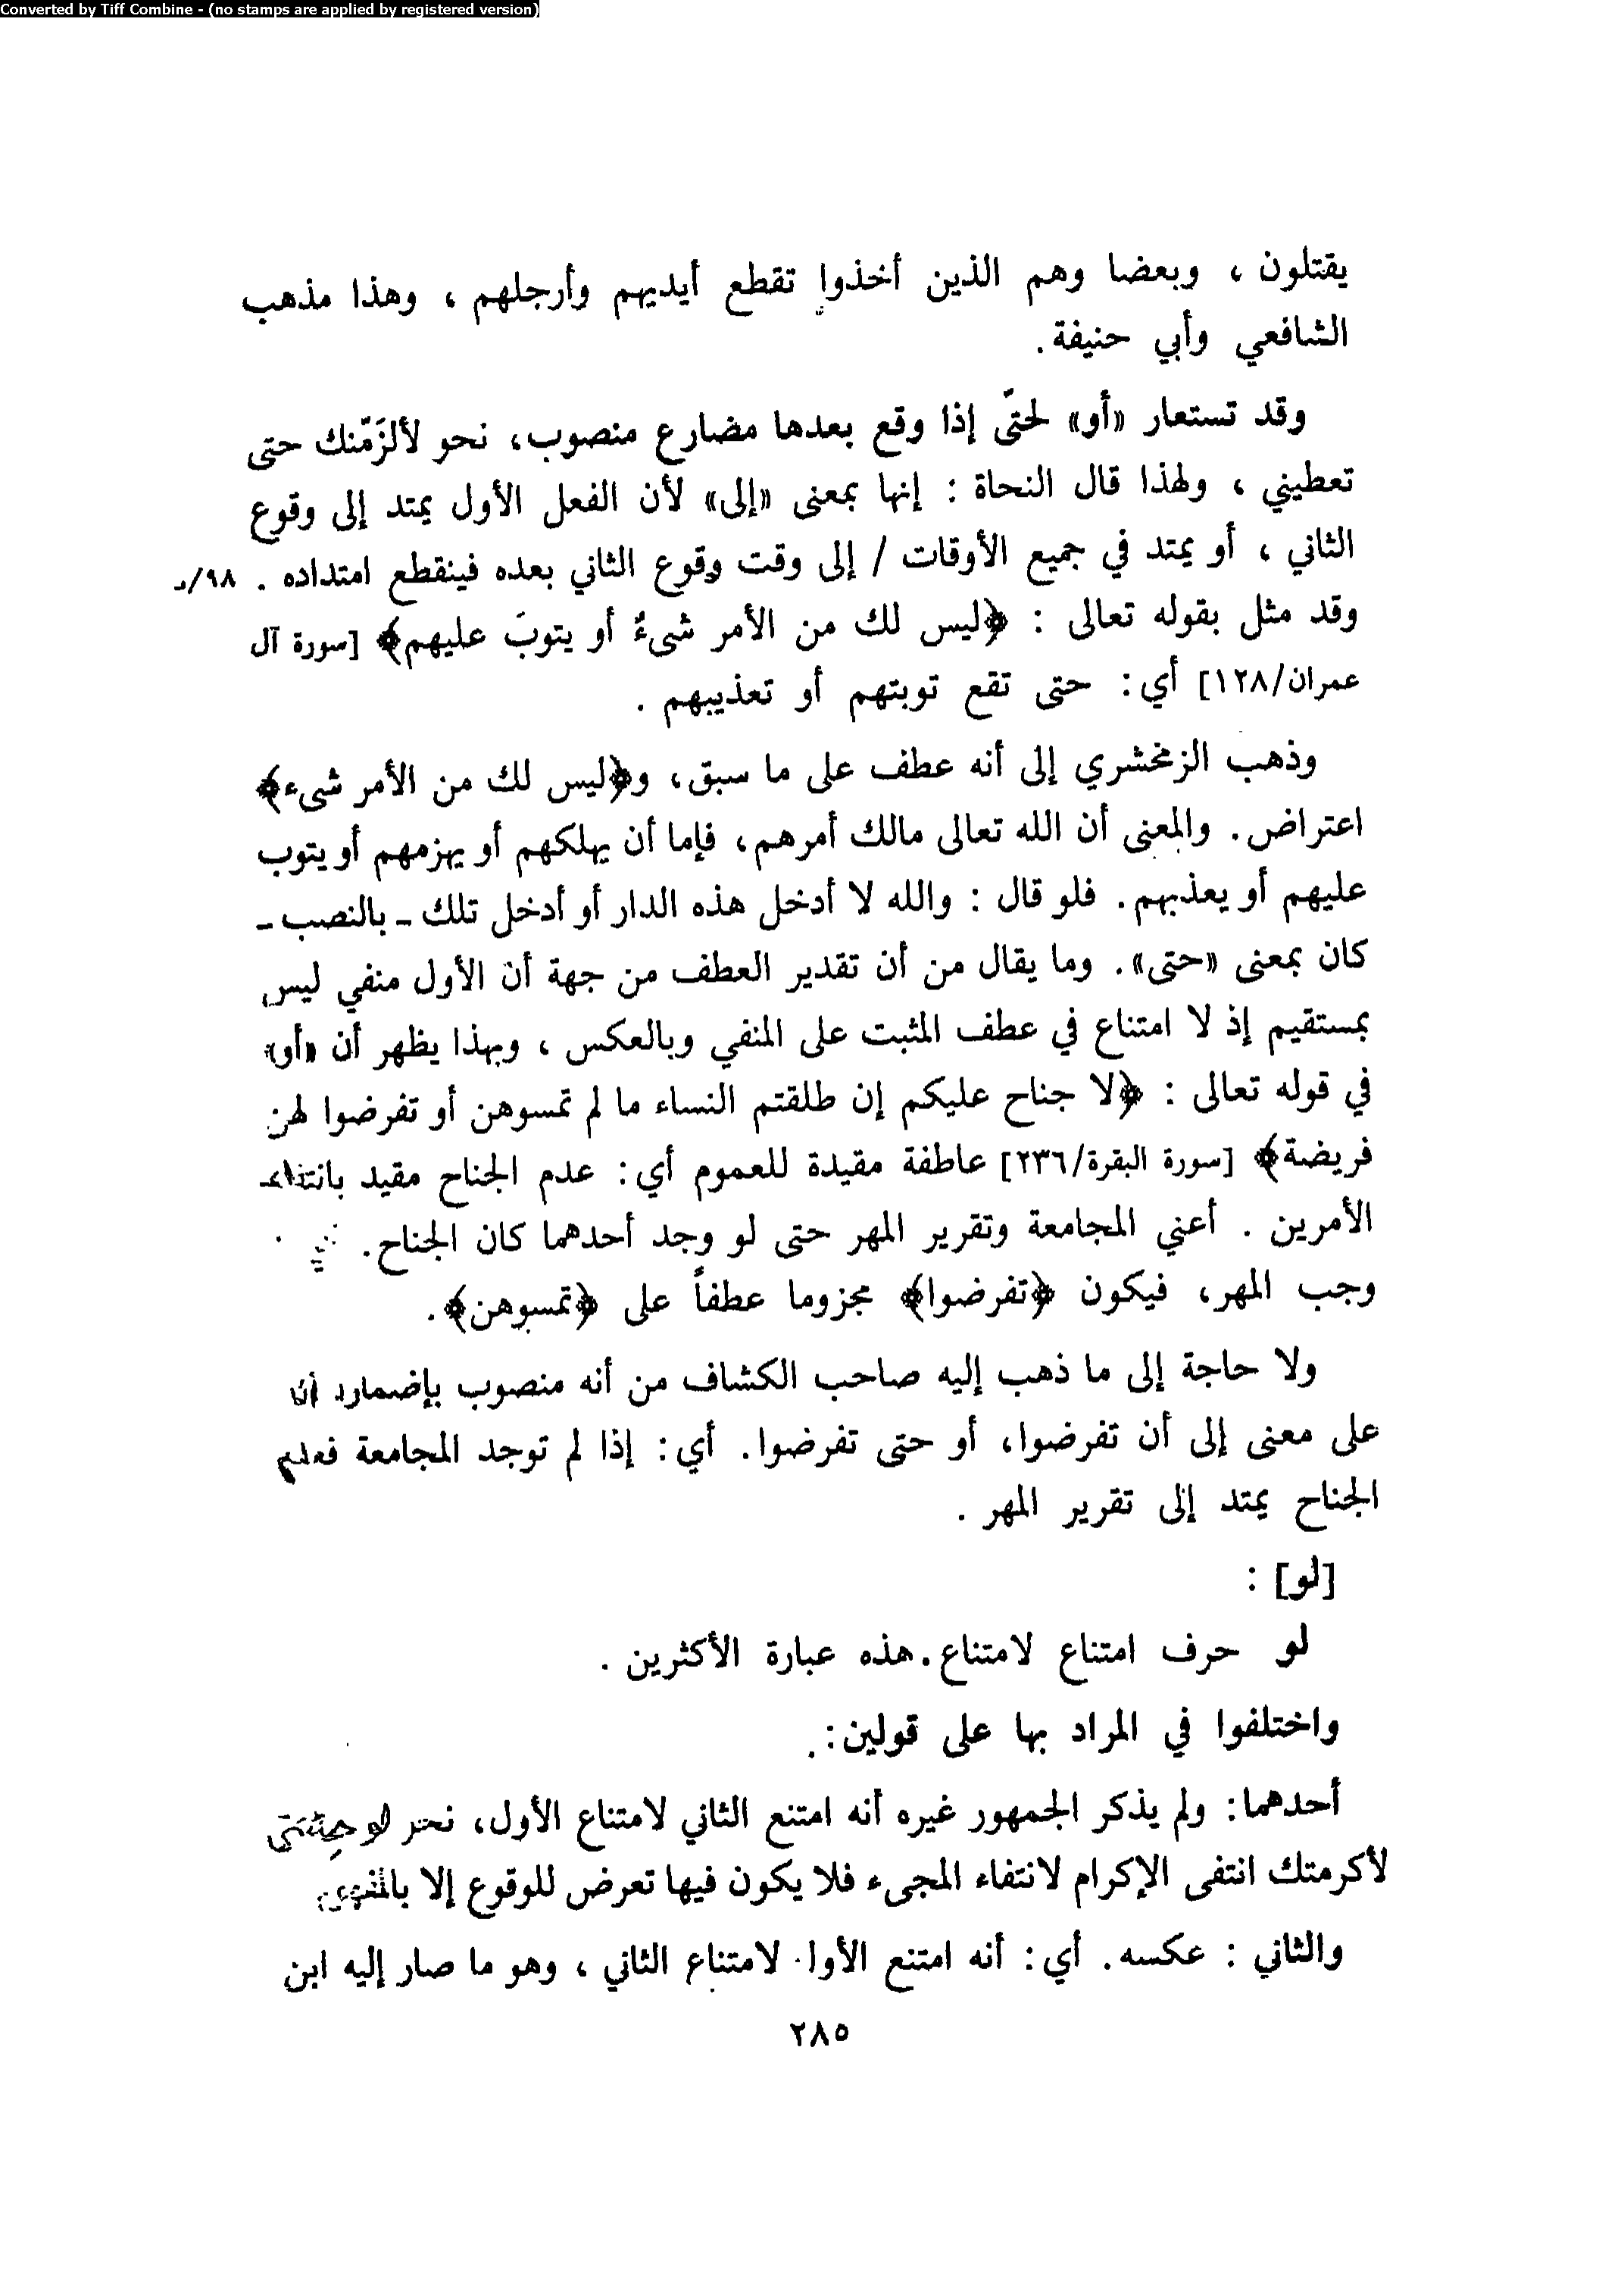 Converted by Tiff Combine - (no stamps are applied by registered version)
يقتلون ، وبعضا وهم الذين أخذوا تقطع أيديهم وأرجلهم ، وهذا مذهب
الشافعي وأبي حنيفة .
وقد تستعار «أو» لحتّى إذا وقع بعدها مضارع منصوب، نحو لألزَمّنك حتى
تعطيني ، ولهذا قال النحاة : إنها بمعنى «إلى» لأن الفعل الأول يمتد إلى وقوع
الثاني ، أو يمتد في جميع الأوقات / إلى وقت وقوع الثاني بعده فينقطع امتداده . ٩٨/
وقد مثل بقوله تعالى : ﴿ليس لك من الأمر شىءٌ أو يتوبَ عليهم﴾ [سورة آل
عمران/١٢٨] أي: حتى تقع توبتهم أو تعذيبهم .
وذهب الزمخشري إلى أنه عطف على ما سبق، و﴿ليس لك من الأمر شىء﴾
اعتراض. والمعنى أن الله تعالى مالك أمرهم، فإما أن يهلكهم أو يهزمهم أو يتوب
عليهم أو يعذبهم. فلو قال : والله لا أدخل هذه الدار أو أدخل تلك ـ بالنصب ـ
كان بمعنى «حتى». وما يقال من أن تقدير العطف من جهة أن الأول منفي ليس
بمستقيم إذ لا امتناع في عطف المثبت على المنفي وبالعكس ، وبهذا يظهر أن «أو»
في قوله تعالى : ﴿لا جناح عليكم إن طلقتم النساء ما لم تمسوهن أو تفرضوا لهن
فريضة﴾ [سورة البقرة/٢٣٦] عاطفة مقيدة للعموم أي: عدم الجناح مقيد بانتفاء
الأمرين . أعني المجامعة وتقرير المهر حتى لو وجد أحدهما كان الجناح.
وجب المهر، فيكون ﴿تفرضوا﴾ مجزوما عطفاً على ﴿تمسوهن﴾.
ولا حاجة إلى ما ذهب إليه صاحب الكشاف من أنه منصوب بإضمار أن
على معنى إلى أن تفرضوا، أو حتى تفرضوا. أي: إذا لم توجد المجامعة فعدم
الجناح يمتد إلى تقرير المهر .
[لو] :
لو حرف امتناع لامتناع. هذه عبارة الأكثرين .
واختلفوا في المراد بها على قولين:
أحدهما: ولم يذكر الجمهور غيره أنه امتنع الثاني لامتناع الأول، نحو لو جئتني
لأكرمتك انتفى الإكرام لانتفاء المجىء فلا يكون فيها تعرض للوقوع إلا
والثاني : عكسه. أي: أنه امتنع الأول لامتناع الثاني ، وهو ما صار إليه ابن
٢٨٥